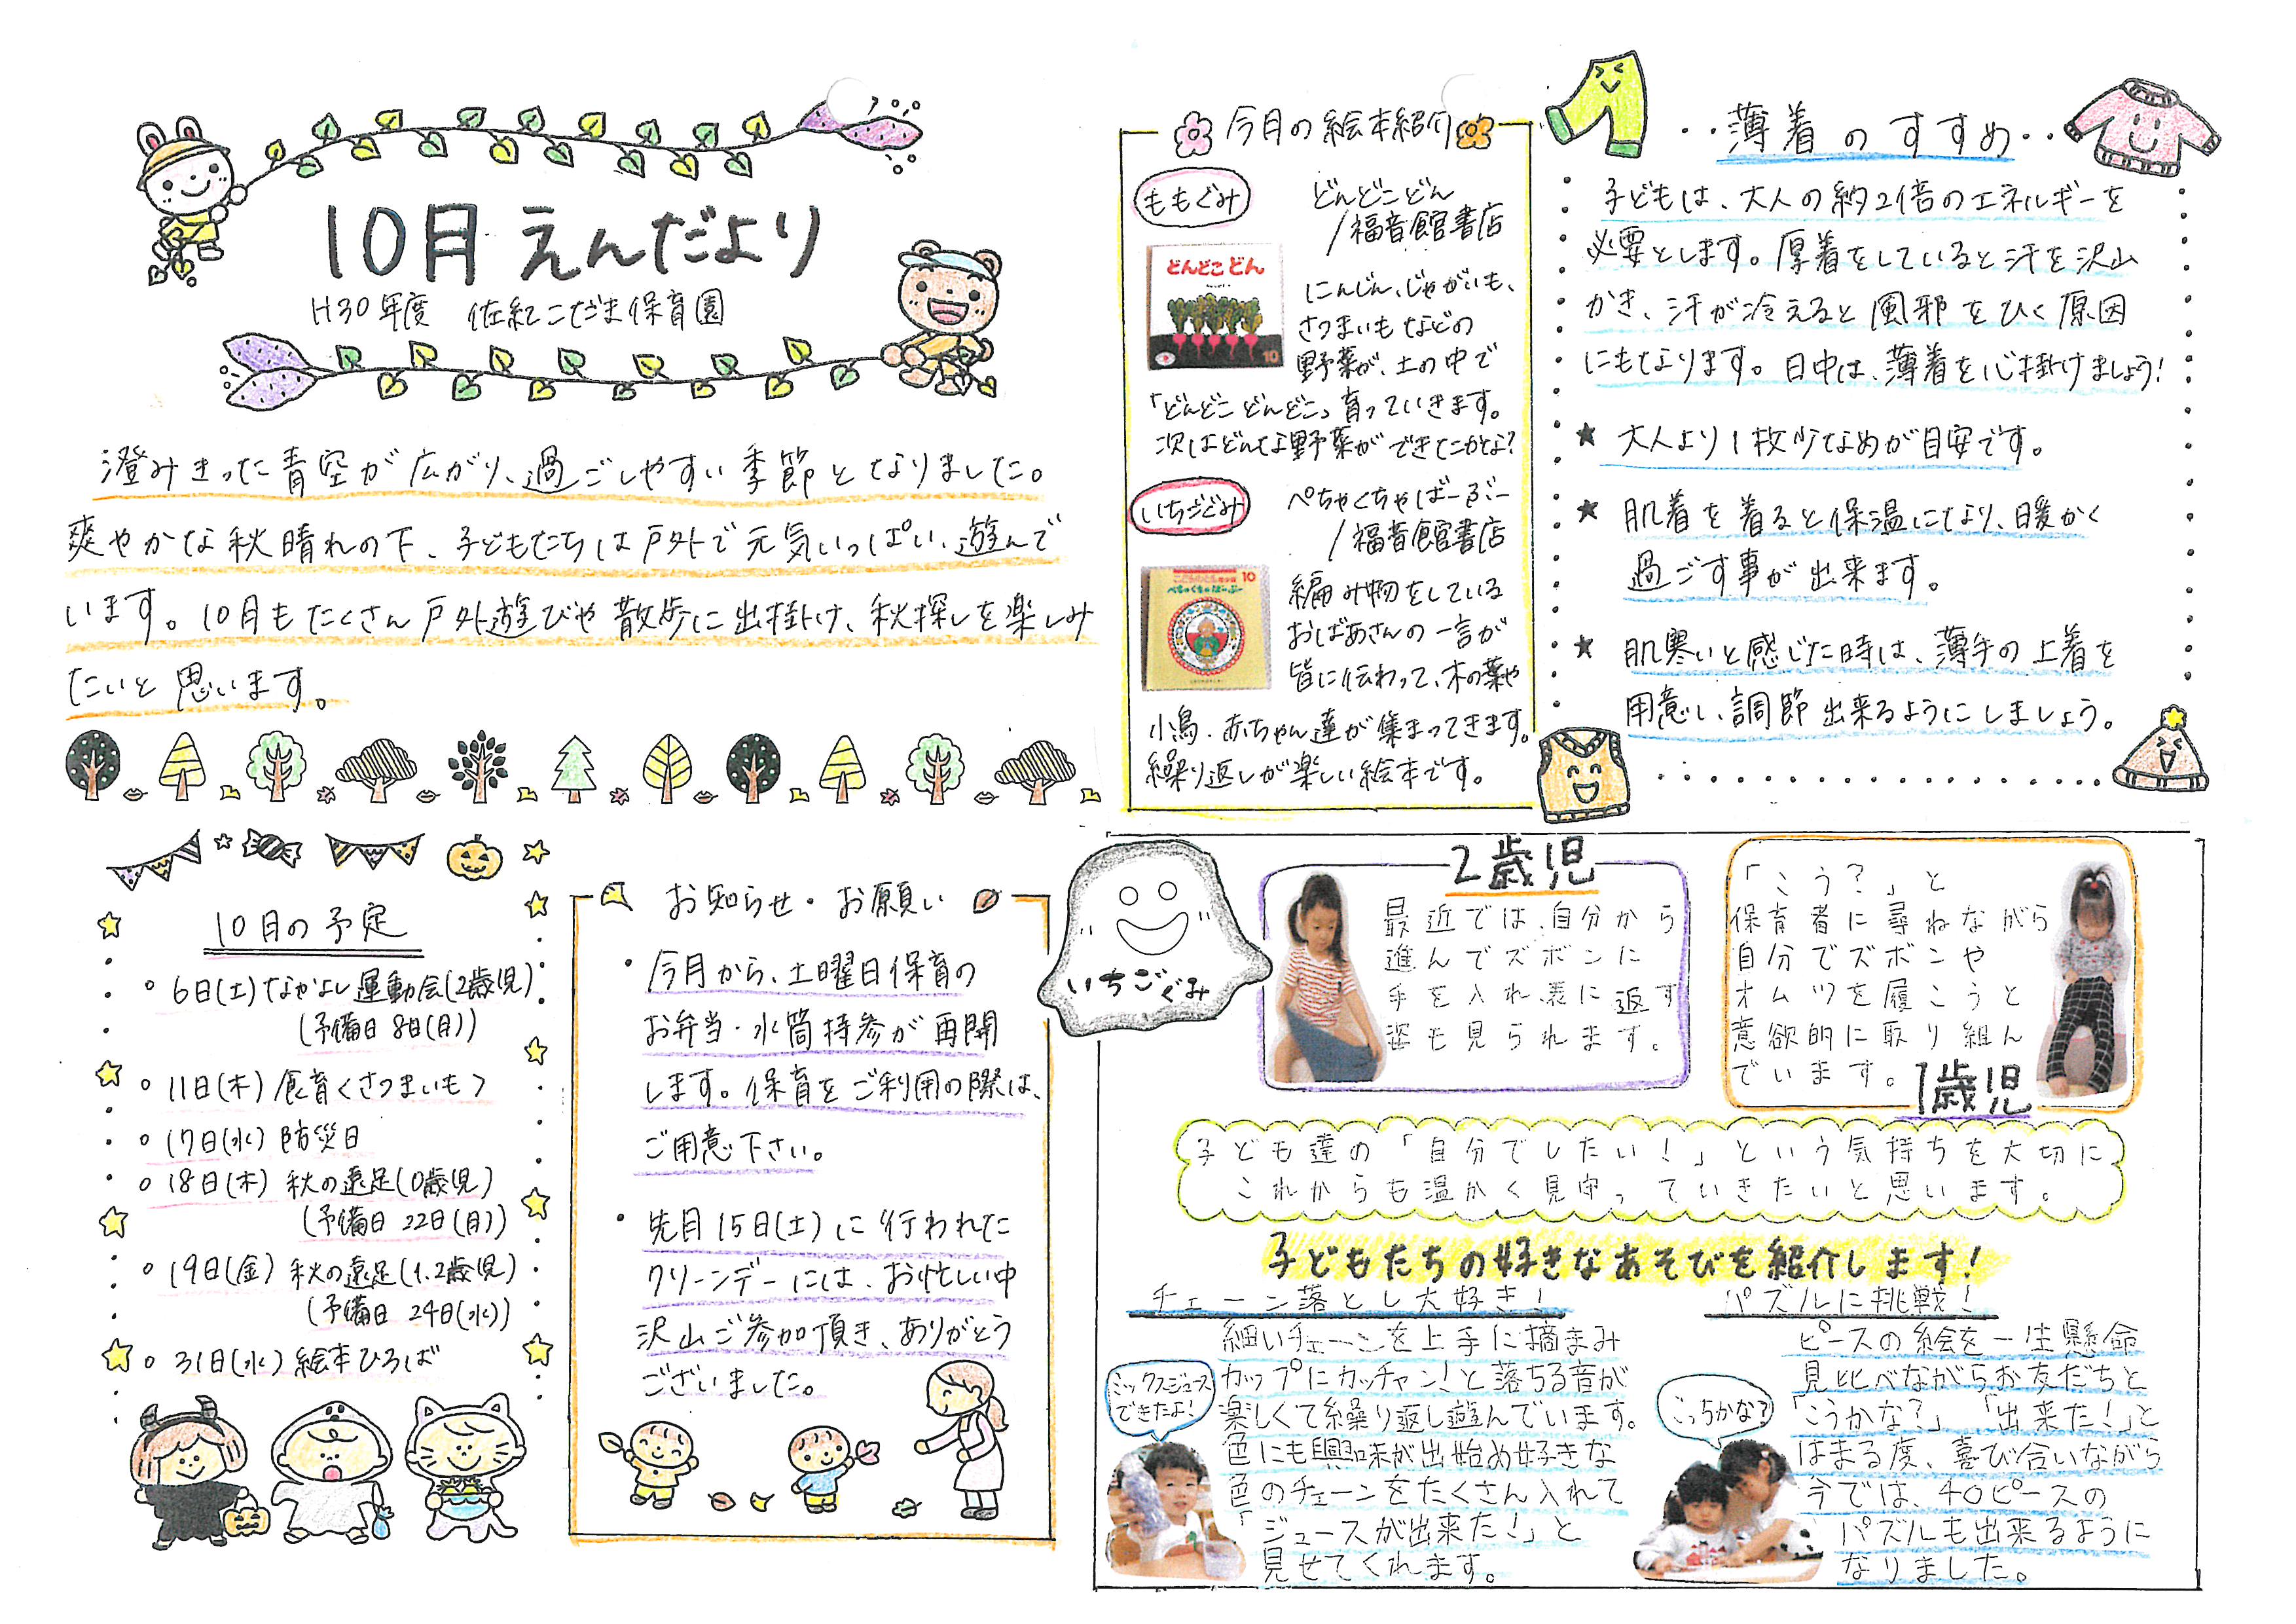 10月 えんだより
H30年度 佐紀こだま保育園
澄みきった青空が広がり、過ごしやすい季節となりました。
爽やかな秋晴れの下、子どもたちは戸外で元気いっぱい遊んで
います。10月もたくさん戸外遊びや散歩に出掛け、秋探しを楽しみ
たいと思います。
10月の予定
6日(土) なかよし運動会(2歳児)
(予備日 8日(月))
11日(木) 食育<さつまいも>
17日(水) 防災日
18日(木) 秋の遠足(0歳児)
(予備日 22日(月))
19日(金) 秋の遠足(1.2歳児)
(予備日 24日(水))
31日(水) 絵本ひろば
お知らせ・お願い
・今月から、土曜日保育の
お弁当・水筒持参が再開
します。保育をご利用の際は、
ご用意下さい。
・先月15日(土)に行われた
クリーンデーには、お忙しい中
沢山ご参加頂き、ありがとう
ございました。
今月の絵本紹介
ももぐみ
どんどこどん
/福音館書店
どんどこ どん
10
にんじん、じゃがいも、
さつまいもなどの
野菜が、土の中で
「どんどこどんどこ」育っていきます。
次はどんな野菜ができたかな?
いちごぐみ
ぺちゃくちゃばーぶー
/福音館書店
10
ぺちゃくちゃばーぶー
編み物をしている
おばあさんの一言が
皆に伝わって、木の葉や
小鳥、赤ちゃん達が集まってきます。
繰り返しが楽しい絵本です。
・・薄着のすすめ・・
子どもは、大人の約2倍のエネルギーを
必要とします。厚着をしていると汗を沢山
かき、汗が冷えると風邪をひく原因
にもなります。日中は、薄着を心掛けましょう!
★ 大人より1枚少なめが目安です。
★ 肌着を着ると保温になり、暖かく
過ごす事が出来ます。
★ 肌寒いと感じた時は、薄手の上着を
用意し、調節出来るようにしましょう。
いちごぐみ
2歳児
最近では、自分から
進んでズボンに
手を入れ、表に返す
姿も見られます。
「こう?」と
保育者に尋ねながら
自分でズボンや
オムツを履こうと
意欲的に取り組ん
でいます。
1歳児
子ども達の「自分でしたい!」という気持ちを大切に
これからも温かく見守っていきたいと思います。
子どもたちの好きなあそびを紹介します!
チェーン落とし大好き!
細いチェーンを上手に摘まみ
カップにカッチャン!と落ちる音が
楽しくて繰り返し遊んでいます。
色にも興味が出始め好きな
色のチェーンをたくさん入れて
「ジュースが出来た!」と
見せてくれます。
ミックスジュース
できたよ!
パズルに挑戦!
ピースの絵を一生懸命
見比べながらお友だちと
「こうかな?」「出来た!」と
はまる度、喜び合いながら
今では、40ピースの
パズルも出来るように
なりました。
こっちかな?